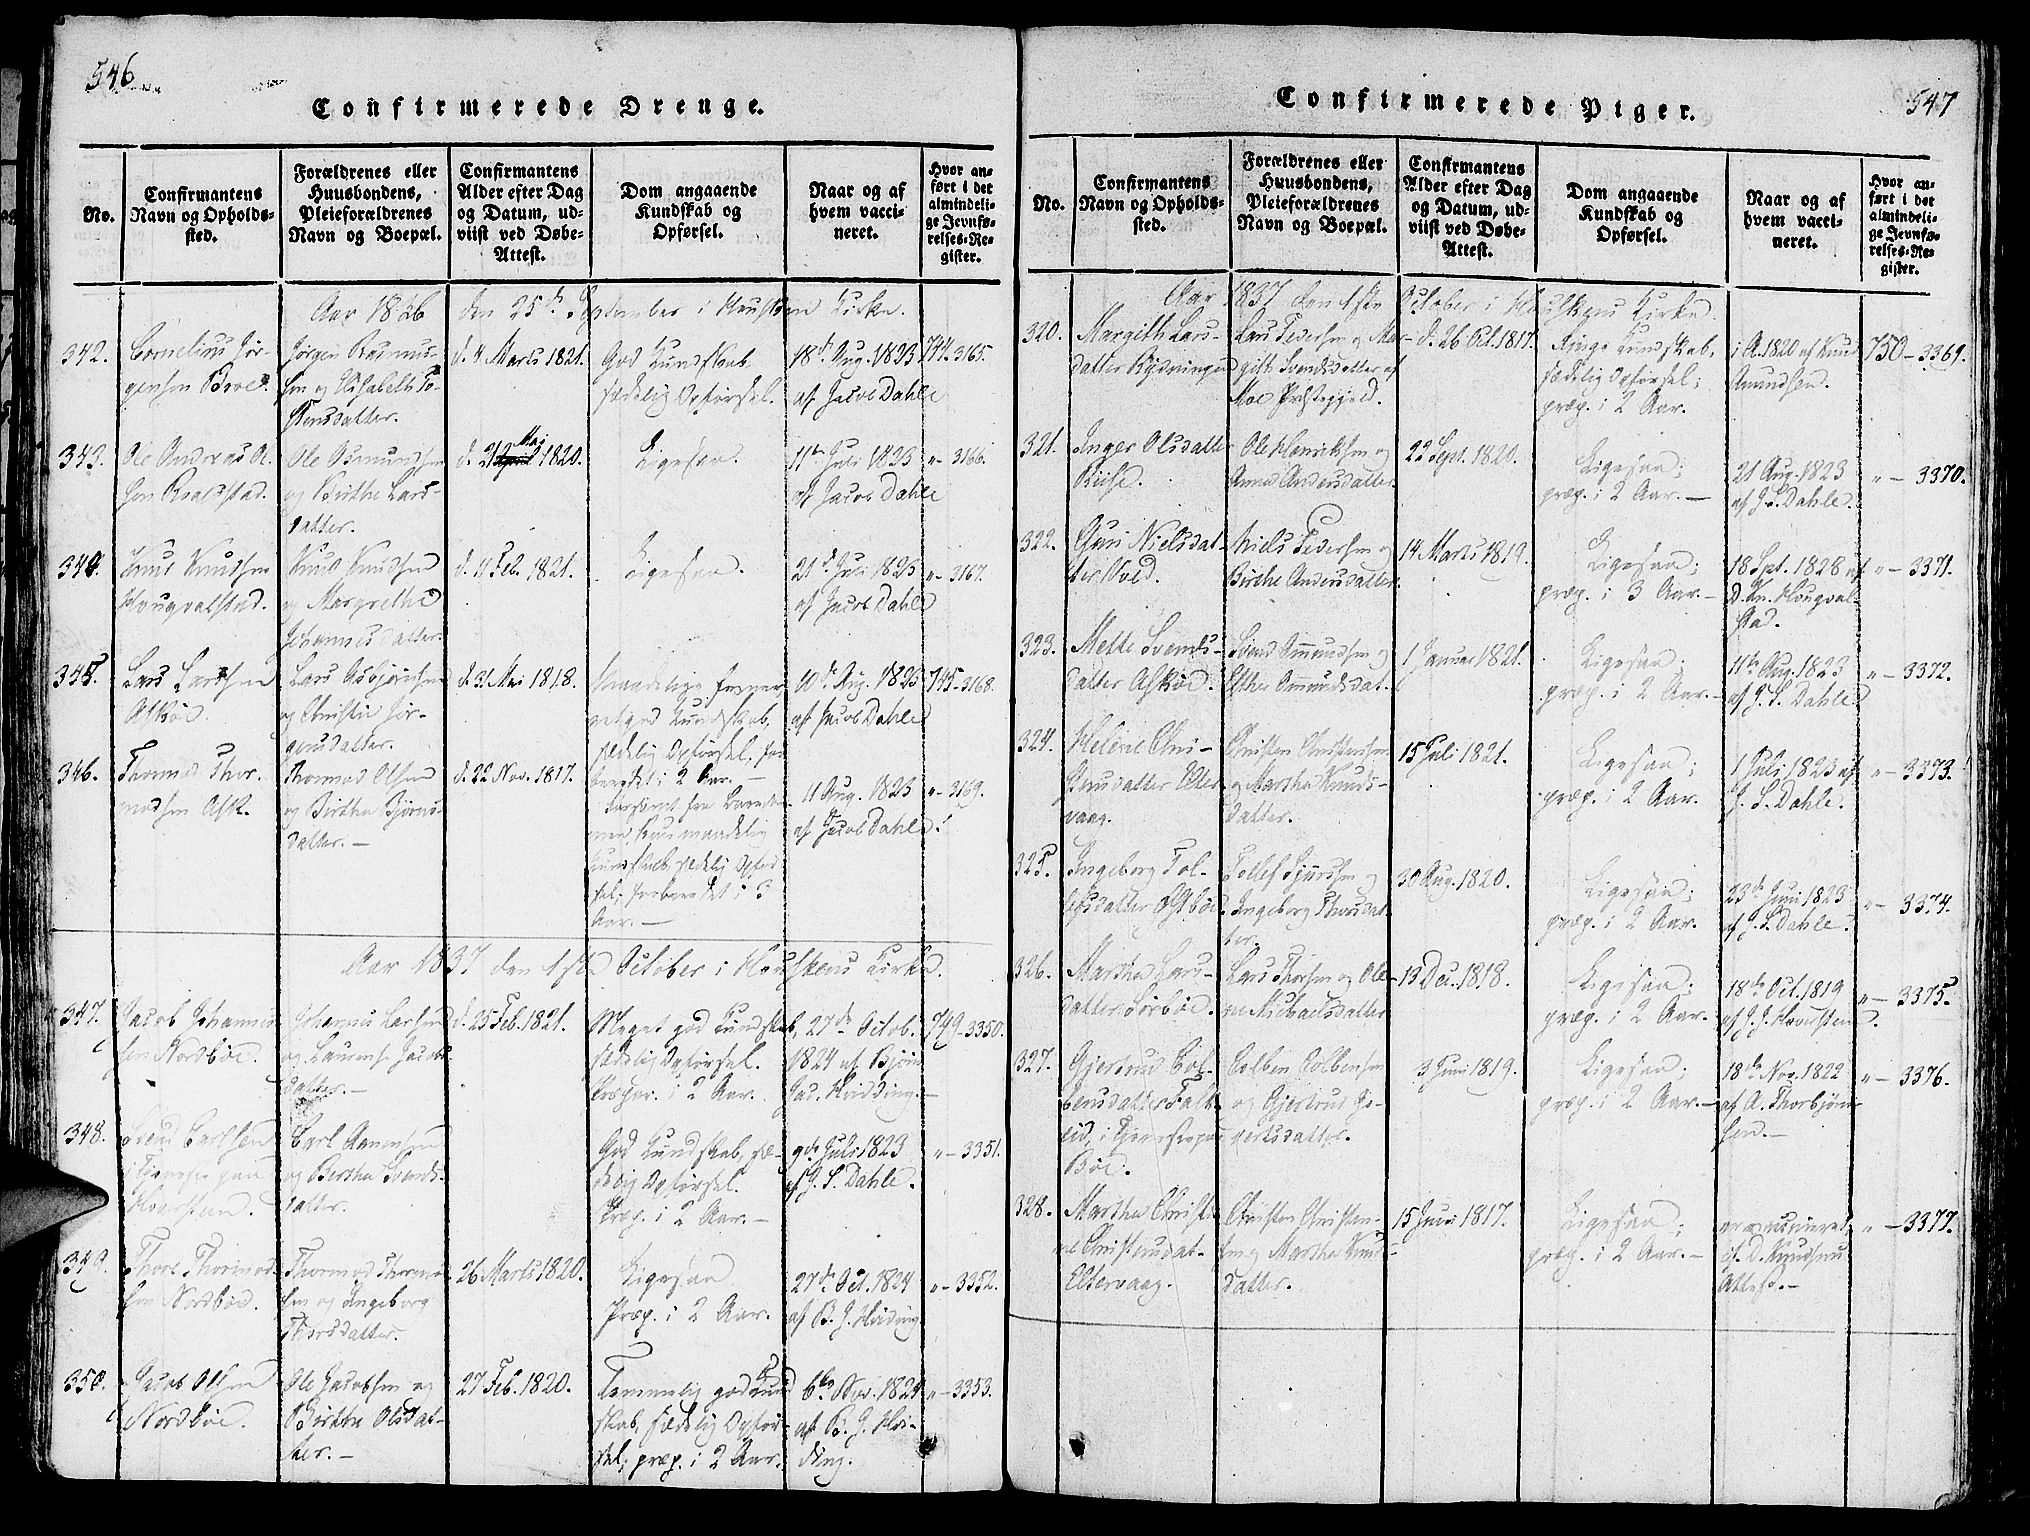 546
Confirmerede Drenge.
No.
Confirmantens
Navn og Opholds-
sted.
Forældrenes eller
Huusbondens,
Pleieforældrenes
Navn og Boepæl.
Confirmantens
Alder efter Dag
og Datum, ud-
viist ved Døbe-
Attest.
Dom angaaende
Kundskab og
Opførsel.
Naar og af
hvem vacci-
neret.
Hvor an-
ført i det
almindeli-
ge Jevnfø-
relses-Re-
gister.
Aar 1836 den 25de September i Kirke.
342.
Cornelius Jør-
gensen Boe.
Jørgen Rasmus-
sen og Elisabeth To-
stensdatter.
d. 4 Marts 1821.
God Kundskab
sædelig Opførsel.
18de Aug. 1823
af Jacob Dahle
744. 3165.
343.
Ole Andreas Ol-
sen
Ole Asmundsen
og Birthe Lars-
datter.
d. 21 Mai 1820.
Ligesaa.
11te Juli 1823
af Jacob Dahle
" - 3166.
344.
Knud Knudsen
Hougvalstad.
Knud Knudsen
og Margrethe
Johannesdatter.
d. 11 Feb. 1821.
Ligesaa.
21de Juli 1823
af Jacob Dahle
" - 3167.
345.
Lars Larsen
Askøe.
Lars Asbjørnsen
og Christie Jør-
gensdatter.
d. 31 Mai 1818.
Kundskab,
sædelig Opførsel, for-
beredet i 2 Aar. -
10de Aug. 1823
af Jacob Dahle
745-3168.
346.
Thormod Thor-
modsen Ask.
Thormod Olsen
og Birthe Bjørns-
datter. -
d. 22 Nov. 1817.
maadelig
Kundskab, sædelig Opfør-
sel, forberedet i 3
Aar. -
11 Aug. 1823
af Jacob Dahle.
" - 3169.
Aar 1837 den 1ste October i Houskens Kirke.
347.
Jacob Johannes-
sen Nordbøe.
Johannes Larsen
og Laurense Jacobs-
datter. -
d. 25 Feb. 1821.
Meget god Kundskab,
sædelig Opførsel.
Præpar. i 2 Aar.
27de Octob.
1824 af Bjørn
Jac. Hodding. -
749-3350.
348.
Svend Carlsen
i Tjeneste paa
Hoversten.
Carl Aanensen
og Berthe Svends-
datter.
God Kundskab, sæ-
delig Opførsel.
Præp. i 2 Aar. -
9de Juli 1823
af J. S. Dahle.
" - 3351.
349.
Thore Thormod-
sen Nordbøe.
Thormod Thormod-
sen og Ingeborg
Thorsdatter.
26 Marts 1820.
Ligesaa
Præp. i 2 Aar.
27de Oct. 1824
af B. J. Hodding.
" - 3352.
350.
Jacob Olsen
Nordbøe.
Ole Jacobsen og
Birthe Olsdat-
ter. -
27 Feb. 1820.
Temmelig god Kund-
skab, sædelig Opfør-
sel, præp. i 2 Aar.
6te Nov. 1824
af B. J. Hod-
ding.
" - 3353.
547
Confirmerede Piger.
No.
Confirmantens
Navn og Opholds-
sted.
Forældrenes eller
Huusbondens,
Pleieforældrenes
Navn og Boepæl.
Confirmantens
Alder efter Dag
og Datum, ud-
viist ved Døbe-
Attest.
Dom angaaende
Kundskab og
Opførsel.
Naar og af
hvem vacci-
neret.
Hvor an-
ført i det
almindeli-
ge Jevnfø-
relses-Re-
gister.
Aar 1837 den 1ste October i Houskens Kirke.
320.
Margith Lars-
datter Rydningen
Lars Pedersen og Mar-
git Svendsdatter af
Moe Præstegjeld.
d. 26 Oct. 1817.
Ringe Kundskab,
sædelig Opførsel;
præp. i 2 Aar.
i A. 1820 af Knud
Amundsen.
750-3369.
321.
Inger Olsdatter
Riise.
Ole Henriksen og
Anne Andersdatter.
22 Sept. 1820.
Ligesaa;
præp. i 2 Aar. -
21 Aug. 1823
af J. S. Dahle.
" - 3370.
322.
Guri Nielsdat-
ter Vold.
Niels Pedersen og
Birthe Andersdatter.
14 Marts 1819.
Ligesaa;
præp. i 3 Aar. -
18 Sept. 1828 af
D. Kn. Hougval-
stad.
" - 3371.
323.
Mette Svends-
datter Askøe.
Svend Ommundsen og
Esther Ommundsdat-
1 Januar 1821.
Ligesaa;
præp. i 2 Aar. -
11te Aug. 1823
af J. S. Dahle
" - 3372.
324.
Helene Chri-
stensdatter Elter-
vaag.
Christen Christensen
og Martha Knuds-
datter.
15 Juli 1821.
Ligesaa;
præp. i 2 Aar.
1 Juli 1823 af
J. S. Dahle.
" - 3373.
325.
Ingeborg Tol-
lefsdatter Østbøe.
Tollef Sjursen og
Ingeborg Thorsdat-
ter.
30 Aug. 1820.
Ligesaa;
præp. i 2 Aar.
23de Juni 1823
af J. S. Dahle.
" - 3374.
326.
Martha Lars-
datter Sørbøe.
Lars Thorsen og Ole-
ne Michaelsdatter
13 Dec. 1818.
Ligesaa;
præp. i 2 Aar.
18de Oct. 1819
af J. J. Hoversten.
" - 3375.
327.
Gjertrud Col-
bensdatter
i Tjeneste paa
Bøe.
Colben Colbensen
og Gjertrud Gi-
vertsdatter.
3 Juni 1819.
Ligesaa;
præp. i 2 Aar. -
18de Nov. 1822
af A. Thorbjørn-
sen. -
" - 3376.
328.
Martha Christi-
ne Christensdat-
Eltervaag.
Christen Christen-
sen og Martha Knuds-
datter.
15 Juni 1817.
Ligesaa;
præp. i 2 Aar. -
af D. Knudsen
" - 3377.